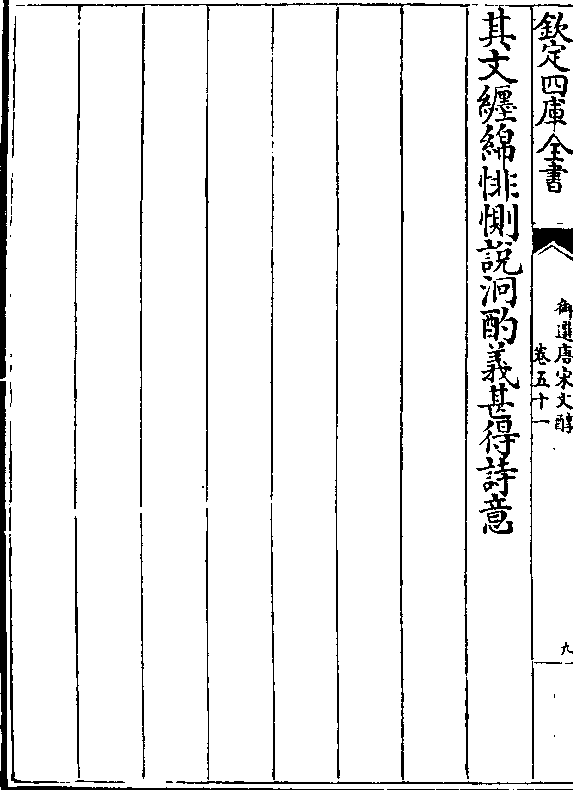 欽定四庫全書
御選唐宋文醇
卷五十一
九
其文纏綿悱惻説泂酌義甚得詩意